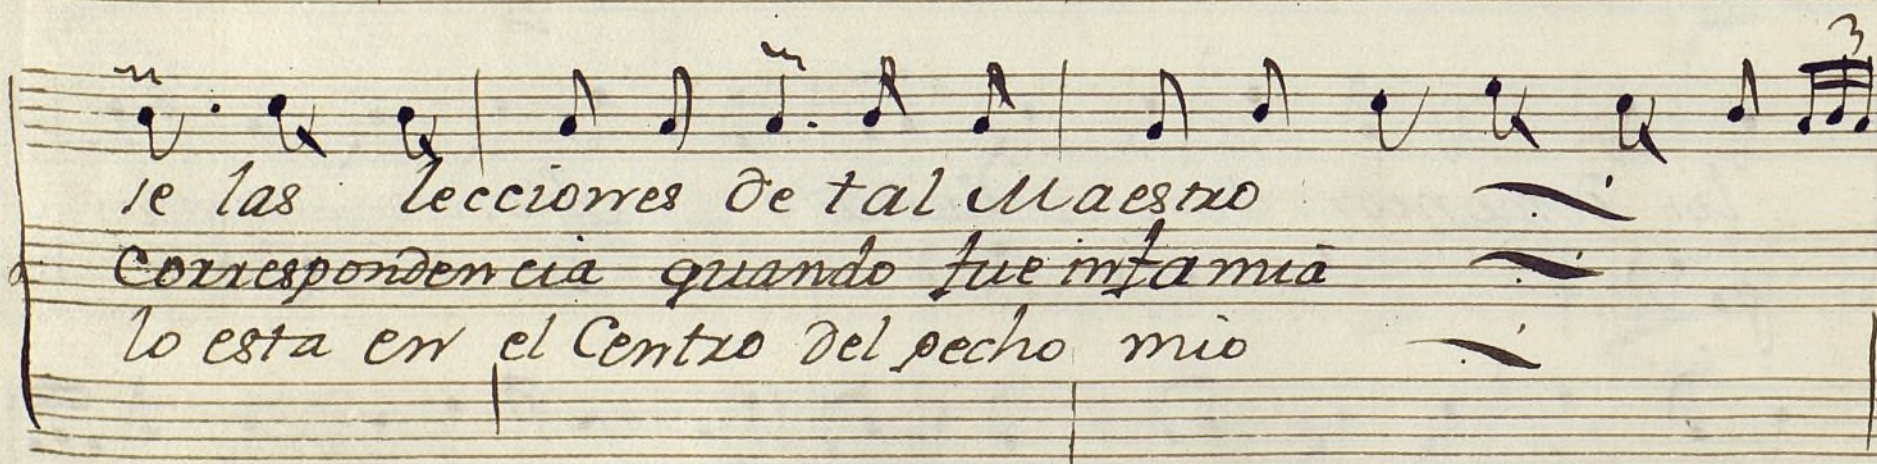 3
le las lecciones de tal Maestro
Correspondencia quando fue infamia
lo esta en el Centro del pecho mio